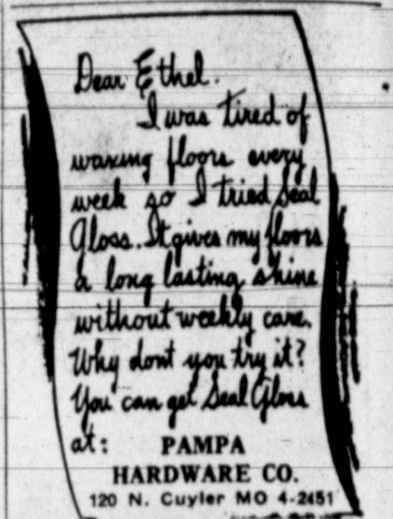 Dear Ethel.
I was tired of
waxing floors every
week so I tried Seal
Gloss. It gives my floors
a long lasting shine
without weekly care.
Why dont you try it?
You can get Seal Gloss
at: PAMPA
HARDWARE CO.
120 N. Cuyler MO 4-2451